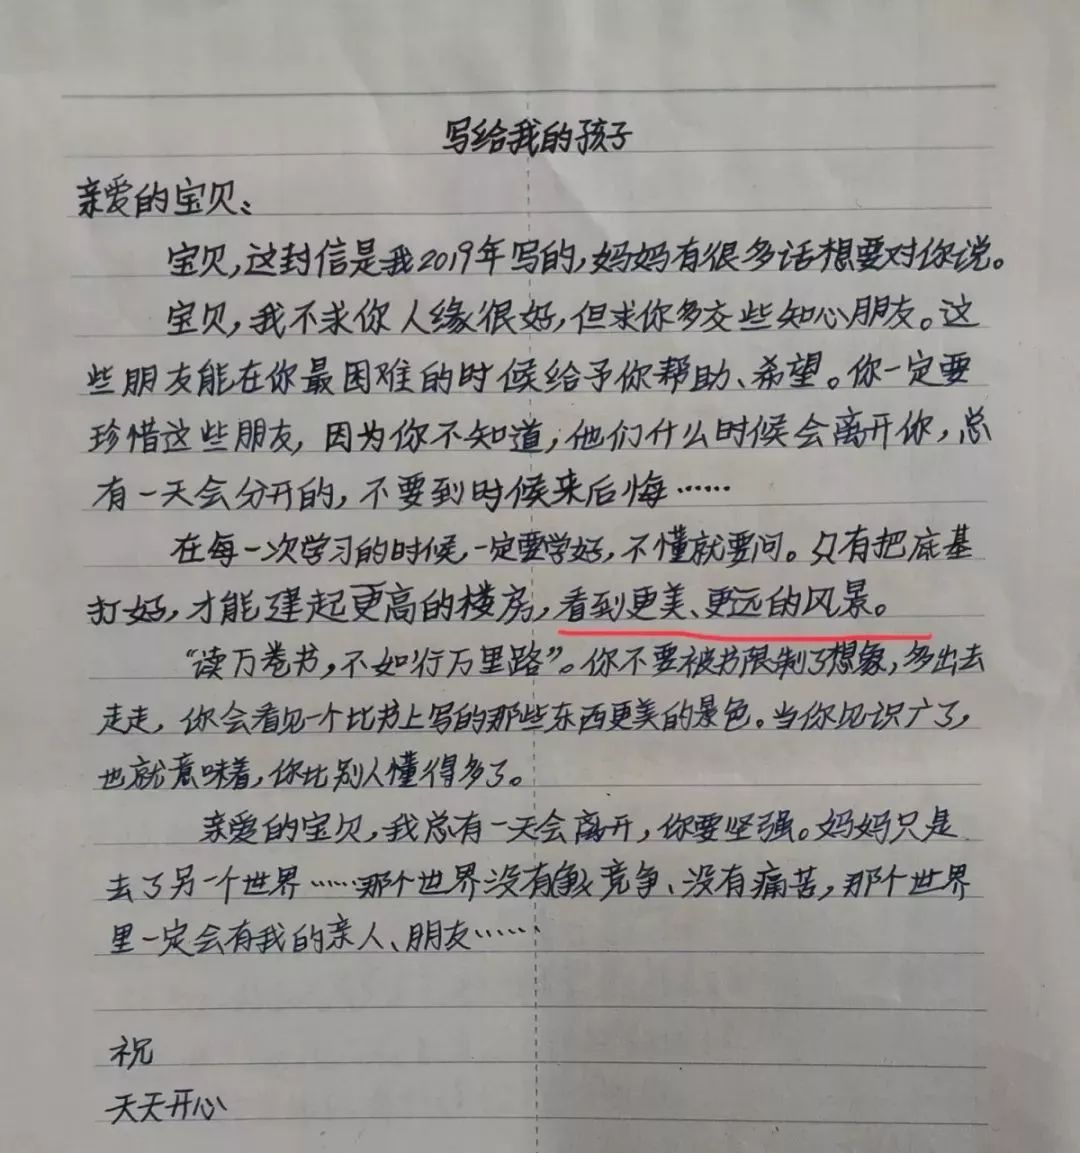 写给我的孩子
亲爱的宝贝：
宝贝，这封信是我2019年写的，妈妈有很多话想要对你说。
宝贝，我不求你人缘很好，但求你多交些知心朋友。这
些朋友能在你最困难的时候给予你帮助、希望。你一定要
珍惜这些朋友，因为你不知道，他们什么时候会离开你，总
有一天会分开的，不要到时候来后悔……
在每一次学习的时候，一定要学好，不懂就要问。只有把底基
打好，才能建起更高的楼房，看到更美、更远的风景。
“读万卷书，不如行万里路”。你不要被书限制了想象，多出去
走走，你会看见一个比书上写的那些东西更美的景色。当你见识广了，
也就意味着，你比别人懂得多了。
亲爱的宝贝，我总有一天会离开，你要坚强。妈妈只是
去了另一个世界……那个世界没有竞争、没有痛苦，那个世界
里一定会有我的亲人、朋友……
祝
天天开心